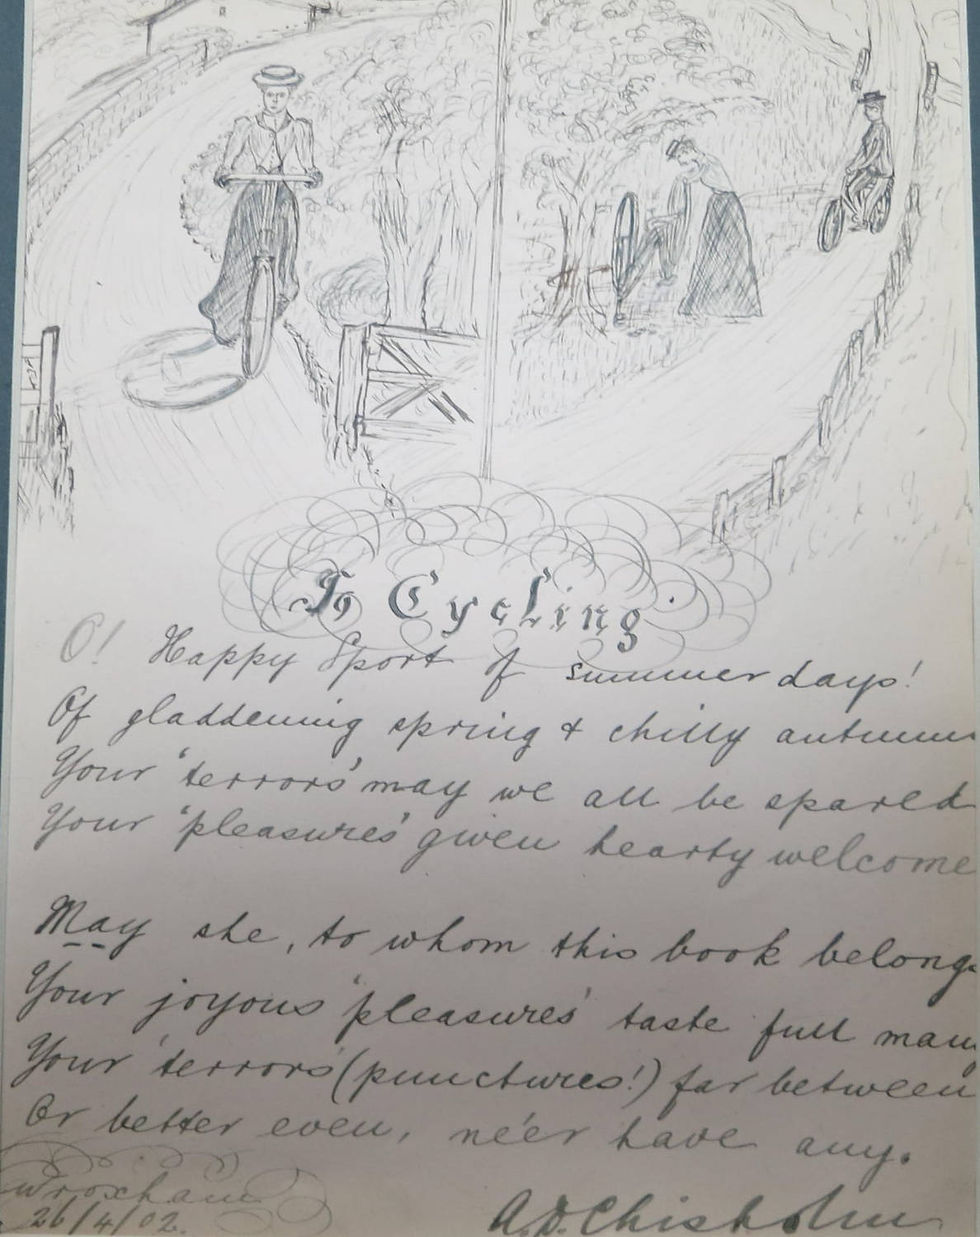 To Cycling.
O! Happy Sport of summer days!
Of gladdening spring & chilly autumn
Your 'terrors' may we all be spared
Your 'pleasures' given hearty welcome
May she, to whom this book belongs
Your joyous 'pleasures' taste full many
Your 'terrors' (punctures!) far between
Or better even, ne'er have any.
Wroxham
26/4/02.
A.D. Chisholm